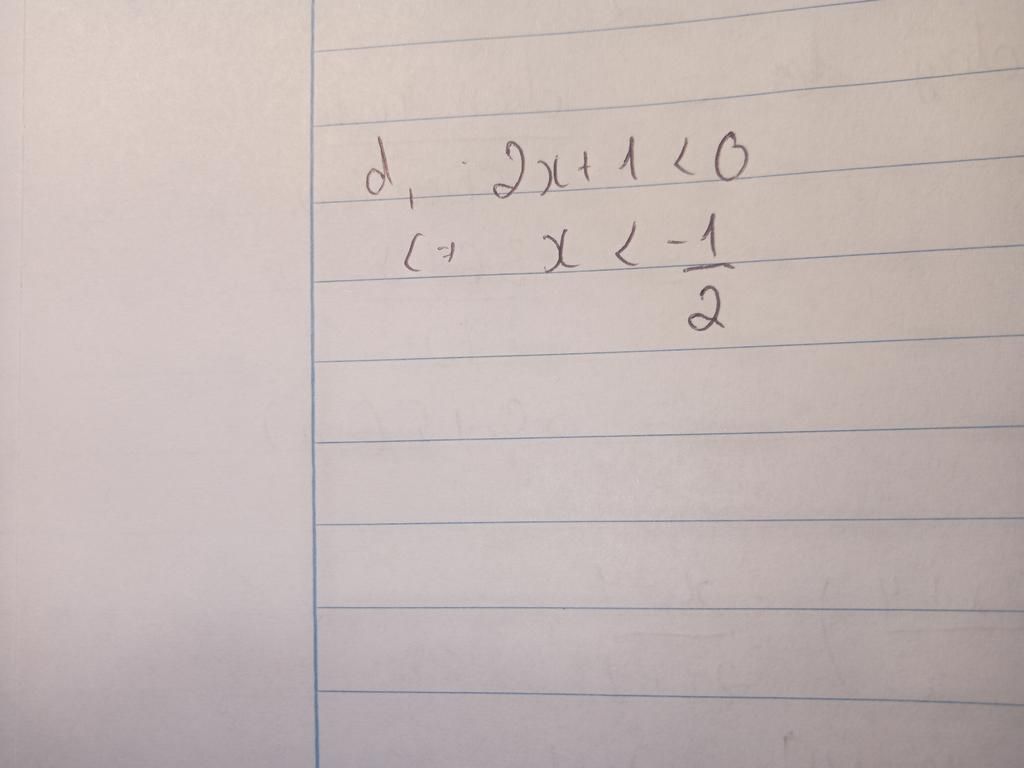 d, 2x + 1 < 0
<=> x < -1/2